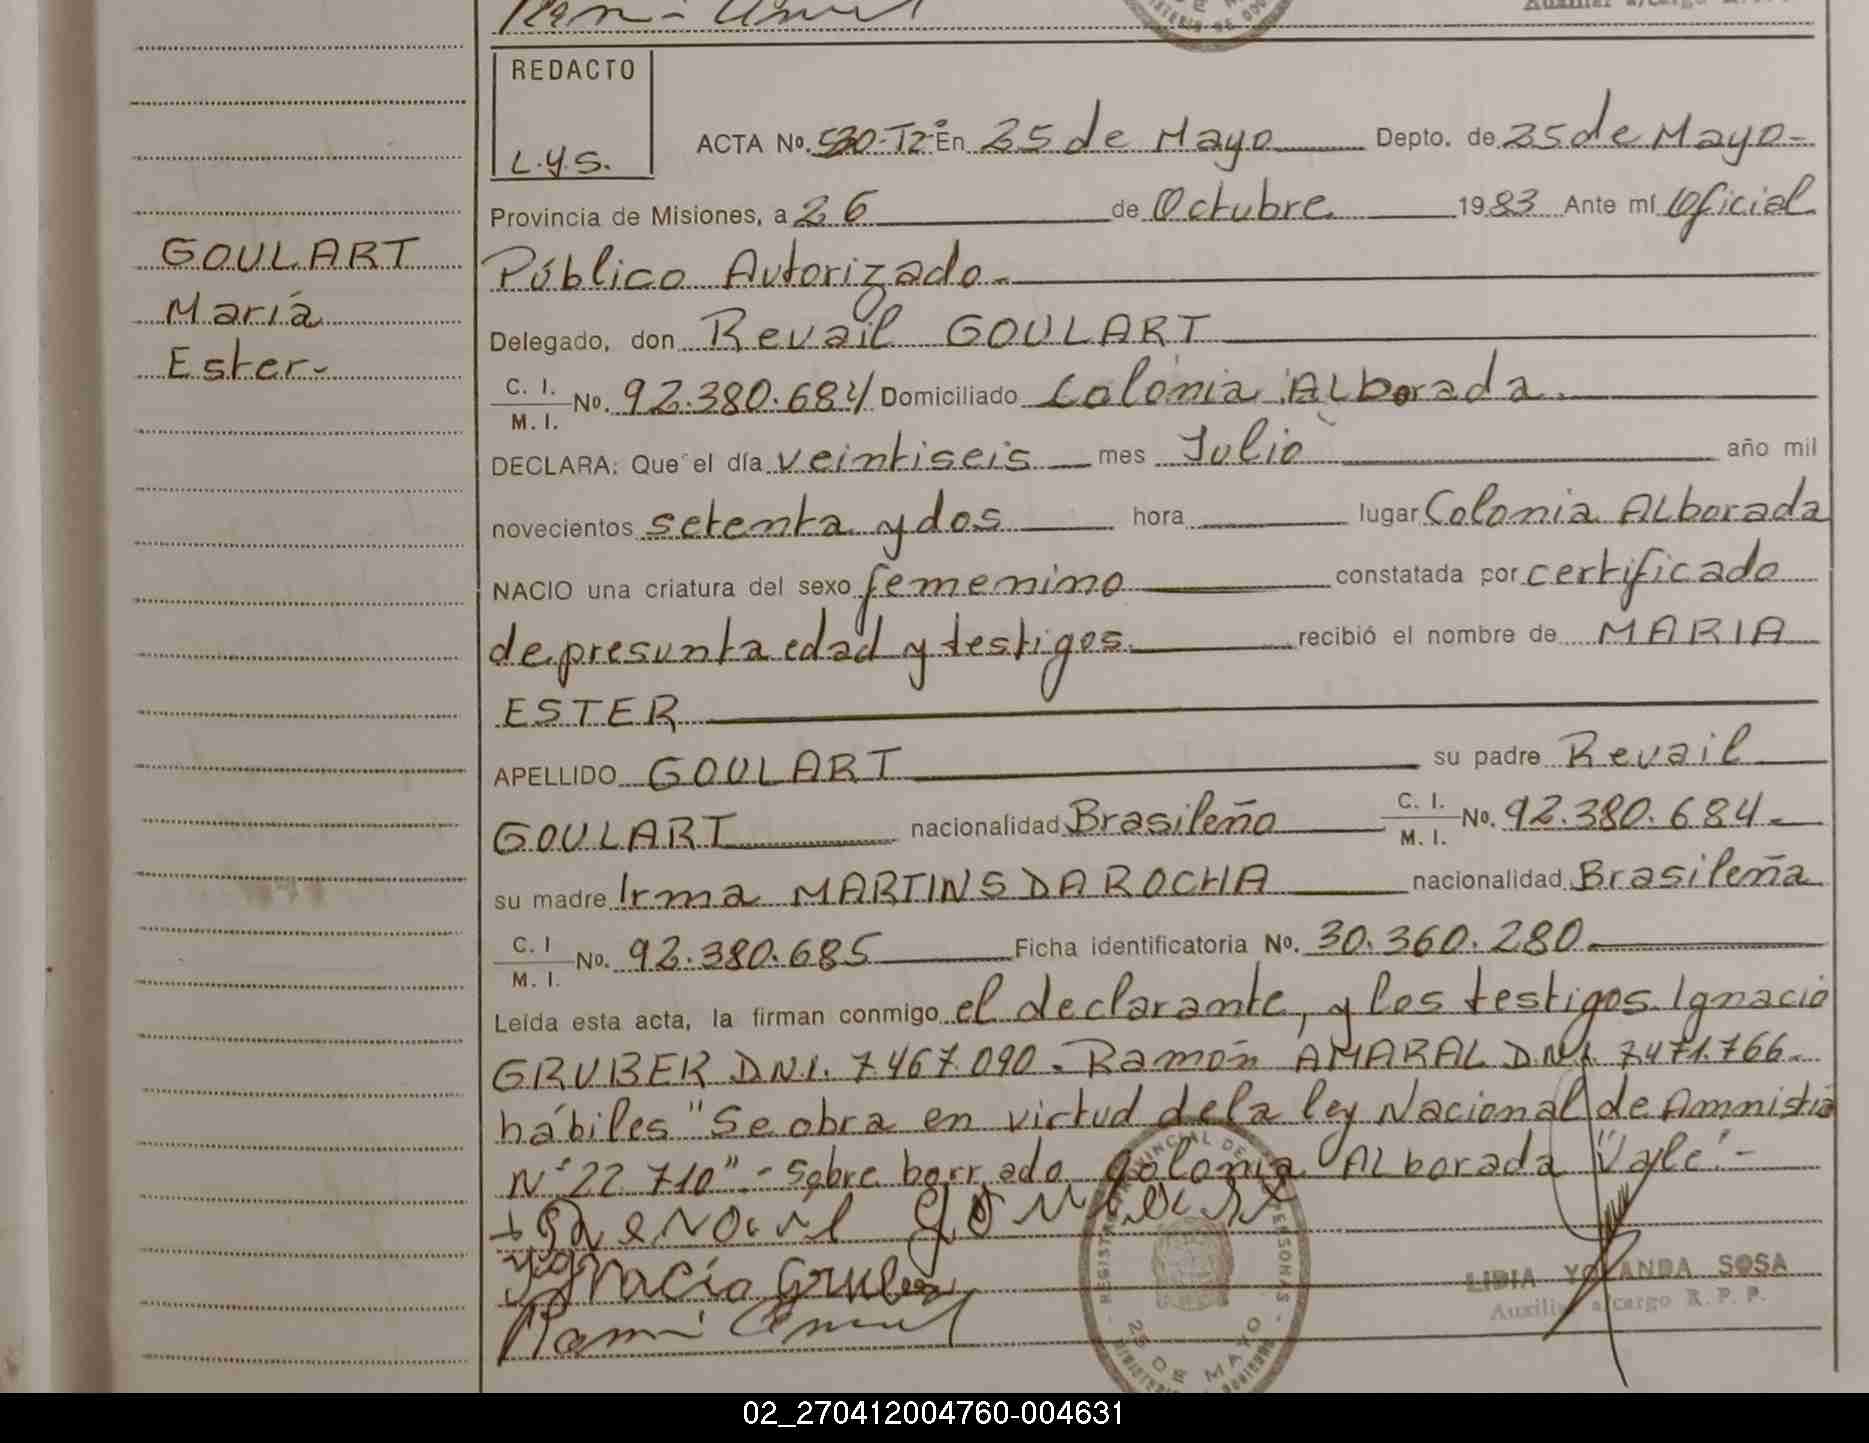 REDACTO
L.y.S.
ACTA No. 530-T2° En 25 de Mayo Depto. de 25 de Mayo-
Provincia de Misiones, a 26 de Octubre 1983 Ante mí Oficial
Público Autorizado.-
Delegado, don Revail GOULART
C. I. / M. I. No. 92.380.684 Domiciliado Colonia Alborada.
DECLARA: Que el día veintiseis mes Julio año mil
novecientos setenta y dos hora lugar Colonia Alborada
NACIO una criatura del sexo femenino constatada por certificado
de presunta edad y testigos. recibió el nombre de MARIA
ESTER
APELLIDO GOULART su padre Revail
GOULART nacionalidad Brasileño C. I. / M. I. No. 92.380.684.-
su madre Irma MARTINS DA ROCHA nacionalidad Brasileña
C. I / M. I. No. 92.380.685 Ficha identificatoria No. 30.360.280.
Leída esta acta, la firman conmigo el declarante, y los testigos Ignacio
GRUBER D.N.I. 7.467.090. Ramón AMARAL D.N.I. 7.471.766.
hábiles "Se obra en virtud de la ley Nacional de Amnistia
N° 22.710".- Sobre borrado Colonia Alborada "Vale".-
Ygnacio Gruber
LIDIA YOLANDA SOSA
Auxiliar a/cargo R. P. P.
25 DE MAYO
GOULART
María
Ester-
02_270412004760-004631